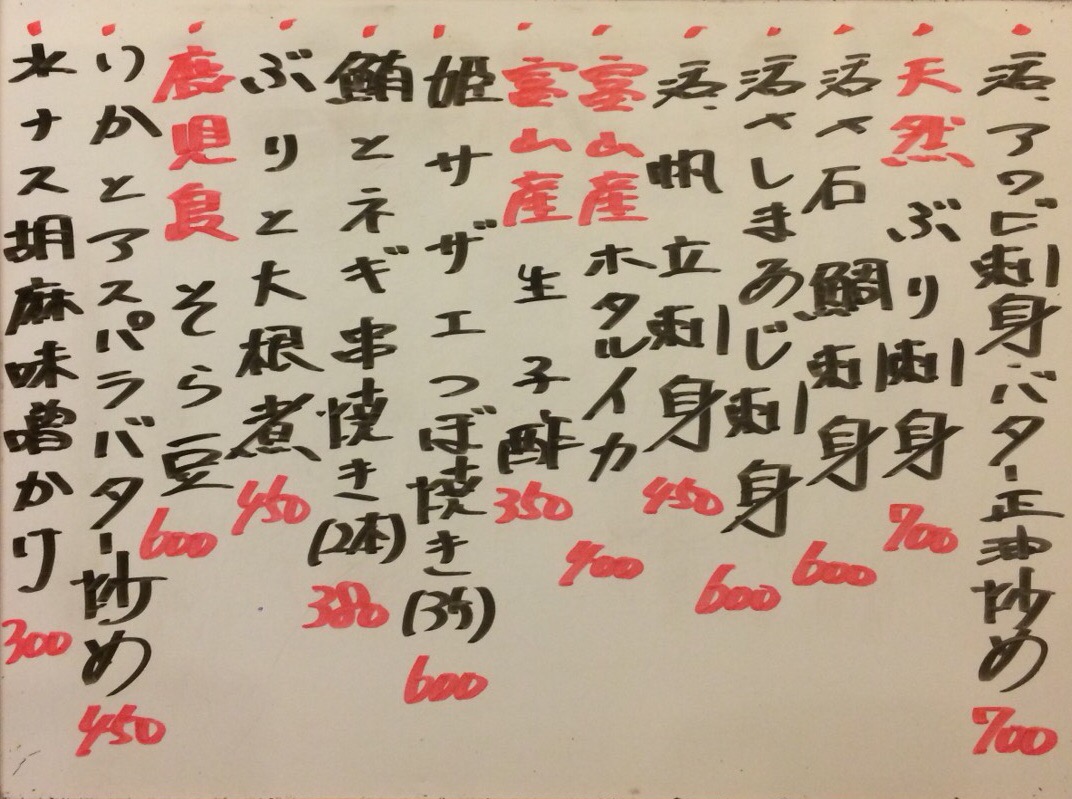 ・活、アワビ刺身バター正油炒め 700
・天然ぶり刺身 700
・活〆石鯛刺身 600
・活〆しまあじ刺身 600
・活、帆立刺身 450
・富山産ホタルイカ 400
・富山産生子酢 350
・姫サザエつぼ焼き(3ケ) 600
・鮪とネギ串焼き(2本) 380
・ぶりと大根煮 450
・鹿児島そら豆 600
・いかとアスパラバター炒め 450
・水ナス胡麻味噌かけ 300